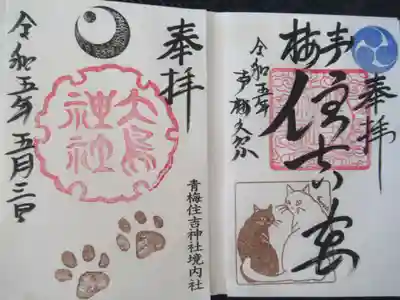 奉拝
青梅
住吉
令和五年
青梅大祭
青梅住吉神社境内社
奉拝
大鳥
神社
令和五年五月三日